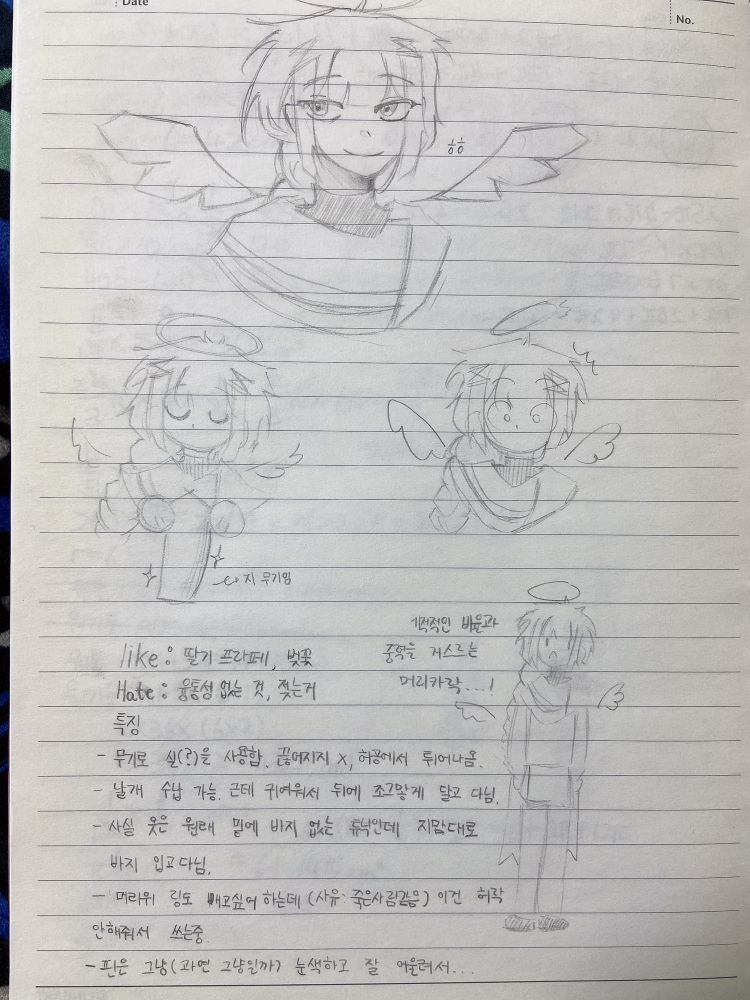 Date
No.
흠
지 무기임
기적적인 비율과
중력을 거스르는
머리카락...!
like : 딸기 프라페, 벚꽃
Hate : 융통성 없는 것, 젖는거
특징
- 무기로 실(?)을 사용함. 끊어지지 X, 허공에서 튀어나옴.
- 날개 수납 가능. 근데 귀여워서 뒤에 조그맣게 달고 다님.
- 사실 옷은 원래 밑에 바지 없는 튜닉인데 지맘대로
바지 입고다님.
- 머리위 링도 빼고싶어 하는데 (사유: 죽은사람같음) 이건 허락
안해줘서 쓰는중.
- 핀은 그냥(과연 그냥일까) 눈색하고 잘 어울려서...